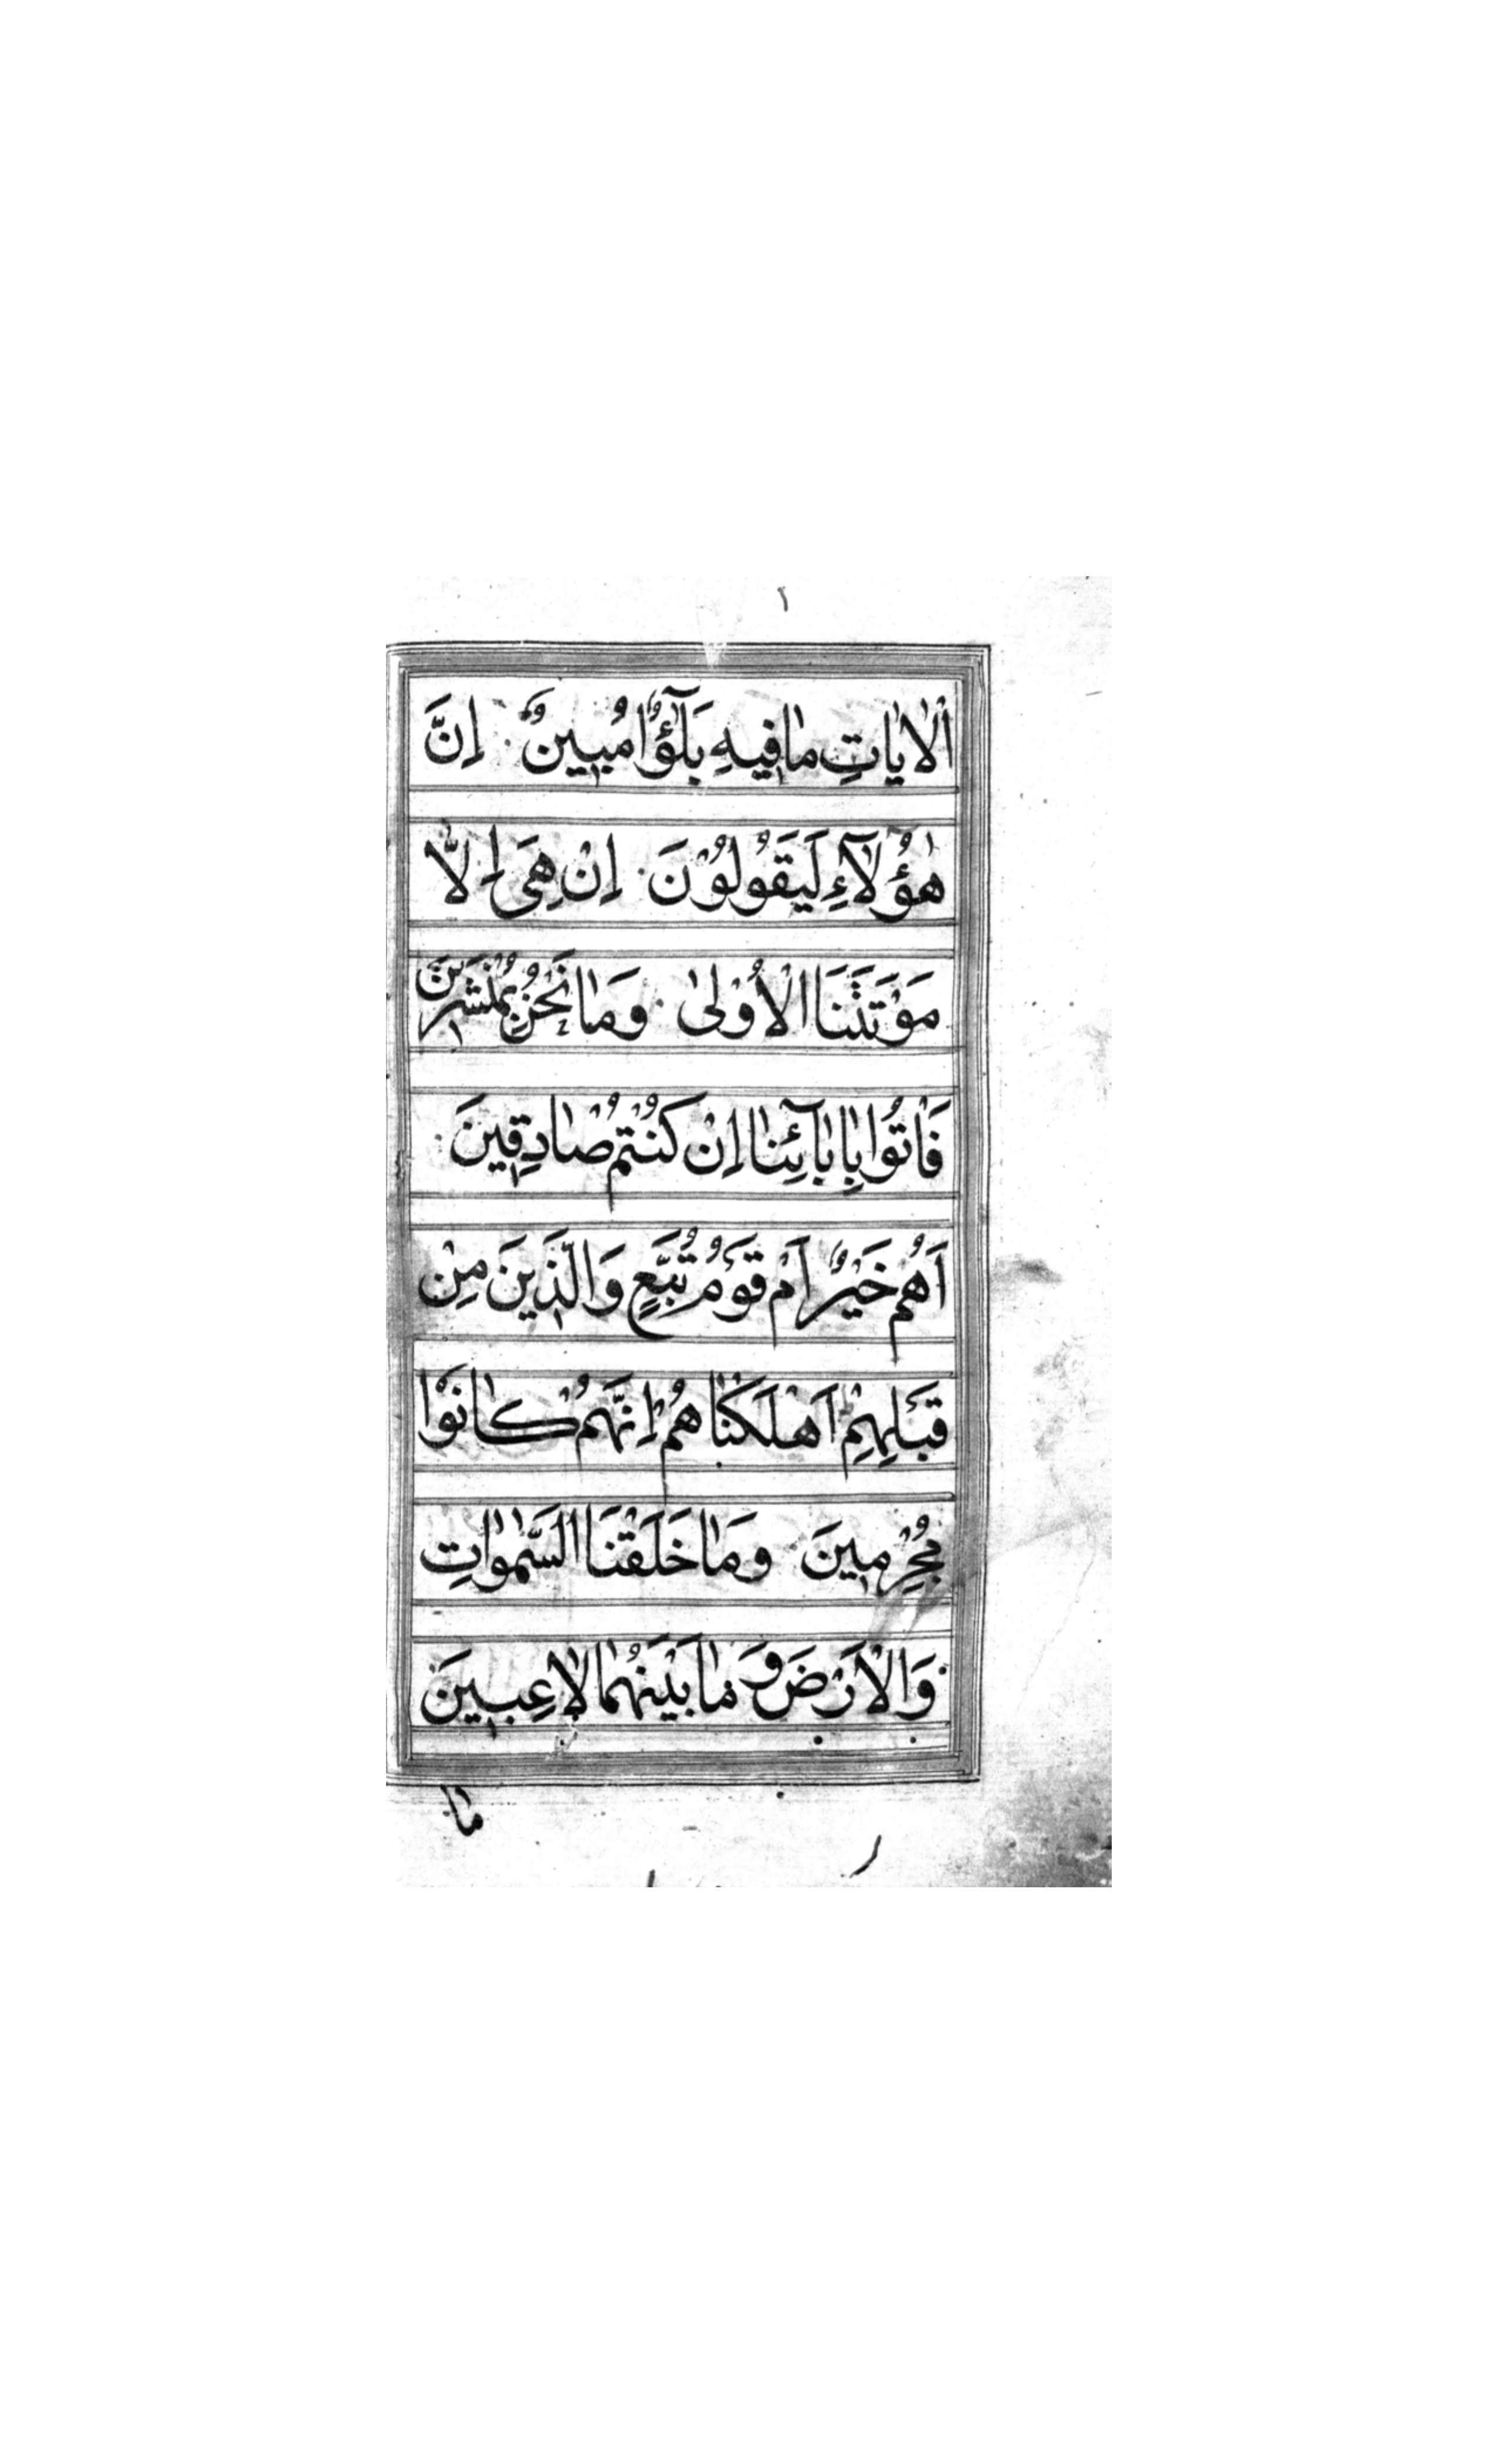 اَلْاٰيٰاتِ مٰا فِيهِ بَلٰٓؤٌا مُبِينٌ اِنَّ
هٰؤُلٰآءِ لَيَقُولُوْنَ اِنْ هِىَ اِلّٰا
مَوْتَتُنَا الْاُوْلىٰ وَمٰا نَحْنُ بِمُنْشَرِينَ
فَاْتُوا بِاٰبٰآئِنٰا اِنْ كُنْتُمْ صٰادِقِينَ
اَهُمْ خَيْرٌ اَمْ قَوْمُ تُبَّعٍ وَالَّذِينَ مِنْ
قَبْلِهِمْ اَهْلَكْنٰاهُمْ اِنَّهُمْ كٰانُوْا
مُجْرِمِينَ وَمٰا خَلَقْنَا السَّمٰوٰاتِ
وَالْاَرْضَ وَمٰا بَيْنَهُمٰا لٰاعِبِينَ
مٰا